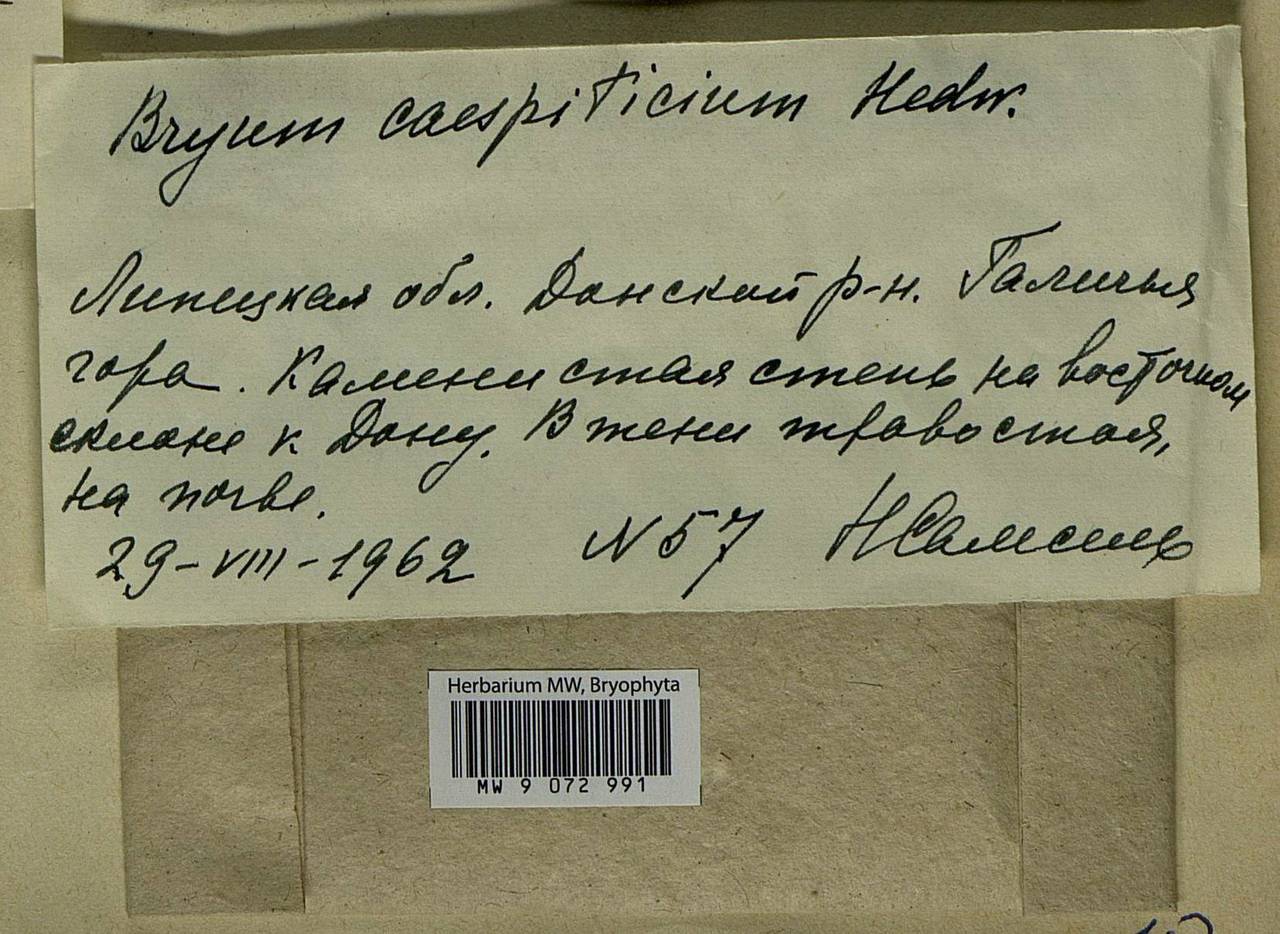 Bryum caespiticium Hedw.
Липецкая обл. Донской р-н. Галичья
гора. Каменистая степь на восточном
склоне к Дону. В тени травостоя,
на почве.
29-VIII-1962 N 57 Н Самсель
Herbarium MW, Bryophyta
MW 9 072 991